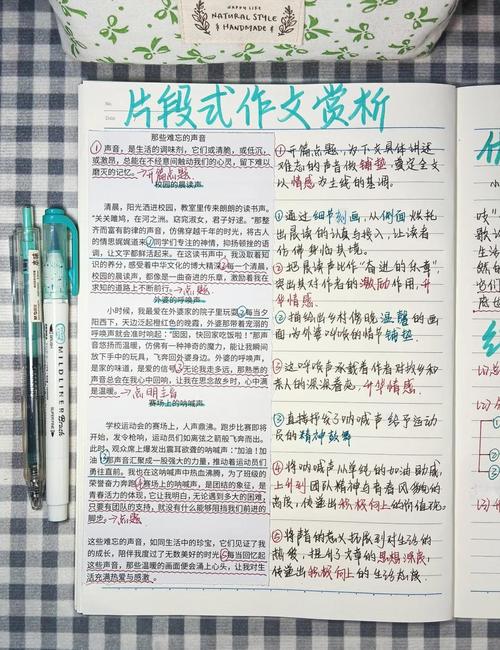 HAPPY LIFE
NATURAL STYLE
HANDMADE
No.
Date
片段式作文赏析
那些难忘的声音
①声音，是生活的调味剂，它们或清脆，或低沉，
或激昂，总能在不经意间触动我们的心灵，留下难以
磨灭的记忆。→开篇点题
校园的晨读声
清晨，阳光洒进校园，教室里传来朗朗的读书声。
“关关雎鸠，在河之洲。窈窕淑女，君子好逑。”那整
齐而富有韵律的声音，仿佛穿越千年的时光，将古人
的情思娓娓道来①同学们专注的神情，抑扬顿挫的语
调，让文字都鲜活起来。在这读书声中，我汲取着知
识的养分，感受着中华文化的博大精深②每一个清晨，
校园的晨读声，都像是一曲奋进的乐章，激励着我在
求知的道路上不断前行。→点题
外婆的呼唤声
小时候，我最爱在外婆家的院子里玩耍③每当夕
阳西下，天边泛起橙红色的晚霞，外婆那带着宠溺的
呼唤声就会准时响起：“囡囡，快回家吃饭啦！”那声
音悠扬而温暖，仿佛有一种神奇的魔力，能让我瞬间
放下手中的玩具，飞奔回外婆身边。外婆的呼唤声，
是家的味道，是爱的信号④无论我走多远，那熟悉的
声音总会在我心中回响，让我在思念故乡时，心中满
是温暖。→点明主旨
赛场上的呐喊声
学校运动会的赛场上，人声鼎沸。跑步比赛即将
开始，发令枪响，运动员们如离弦之箭般飞奔而出。
此时，观众席上爆发出震耳欲聋的呐喊声：“加油！加
③那声音汇聚成一股强大的力量，推动着运动员们
勇往直前。我也在这呐喊声中热血沸腾，为了班级的
荣誉奋力奔跑④赛场上的呐喊声，是团结的象征，是
青春活力的体现，它让我明白，无论遇到多大的困难，
只要有团队的支持，就没有什么能够阻挡我们前进的
脚步。→点题
这些难忘的声音，如同生活中的珍宝，它们见证了我
的成长，陪伴我度过了无数美好的时光⑤每当回忆起
这些声音，那些温暖的画面便会涌上心头，让我对生
活充满热爱与感激。
①开篇点题，为下文具体讲述
难忘的声音做铺垫，奠定全文
以情感为主线的基调。
①通过细节刻画，从侧面烘托
出晨读的认真与投入，让读者
仿佛身临其境。
②把晨读声比作“奋进的乐章”，
突出其对作者的激励作用，升
华情感。
③描绘出乡村傍晚温馨的画
面，为外婆呼唤的情节铺垫。
④这呼唤声承载着作者对故乡和
亲人的深深眷恋，升华情感。
③直接抒发了呐喊声给予运动
员的精神鼓舞
④将呐喊声从单纯的加油助威，
上升到团队精神与青春风貌的
高度，传递出积极向上的价值观。
⑤将声音的意义拓展到对生活的
热爱，提升了文章的思想深度，
传递出积极向上的生活态度。
MILDLINER Brush